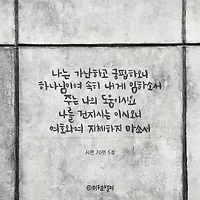 나는 가난하고 궁핍하오니
하나님이여 속히 내게 임하소서
주는 나의 도움이시요
나를 건지시는 이시오니
여호와여 지체하지 마소서
시편 70편 5절